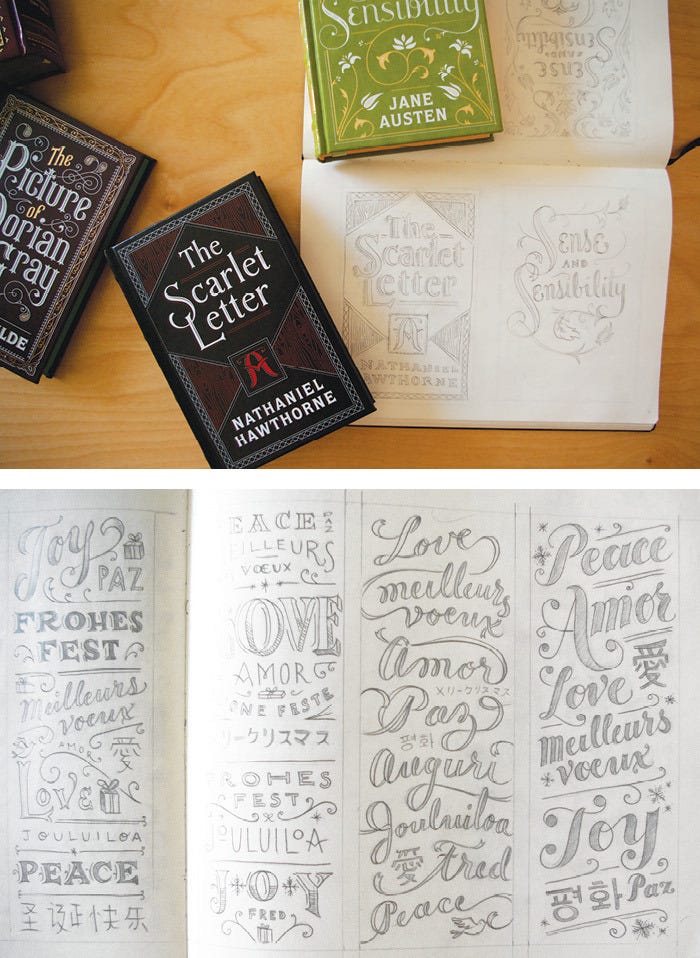 Sensibility
JANE
AUSTEN
The
Picture
of
Dorian
Gray
LDE
The
Scarlet
Letter
A
NATHANIEL
HAWTHORNE
SENSE
AND
SENSIBILITY
The
Scarlet
Letter
A
NATHANIEL
HAWTHORNE
SENSE
AND
SENSIBILITY
Joy
PAZ
FROHES
FEST
Meilleurs
voeux
AMOR 愛
LOVE
JOULUILOA
PEACE
圣诞快乐
EACE PAZ
EILLEURS
VŒUX
OVE
AMOR
ONE FESTE
リークリスマス
FROHES
FEST
JOULUILOA
JOY
FRED
Love
meilleurs
voeux
Amor
メリークリスマス
Paz
평화
Auguri
Jouluiloa
愛 Fred
Peace
Peace
Amor
愛
Love
Meilleurs
voeux
Joy
평화 Paz